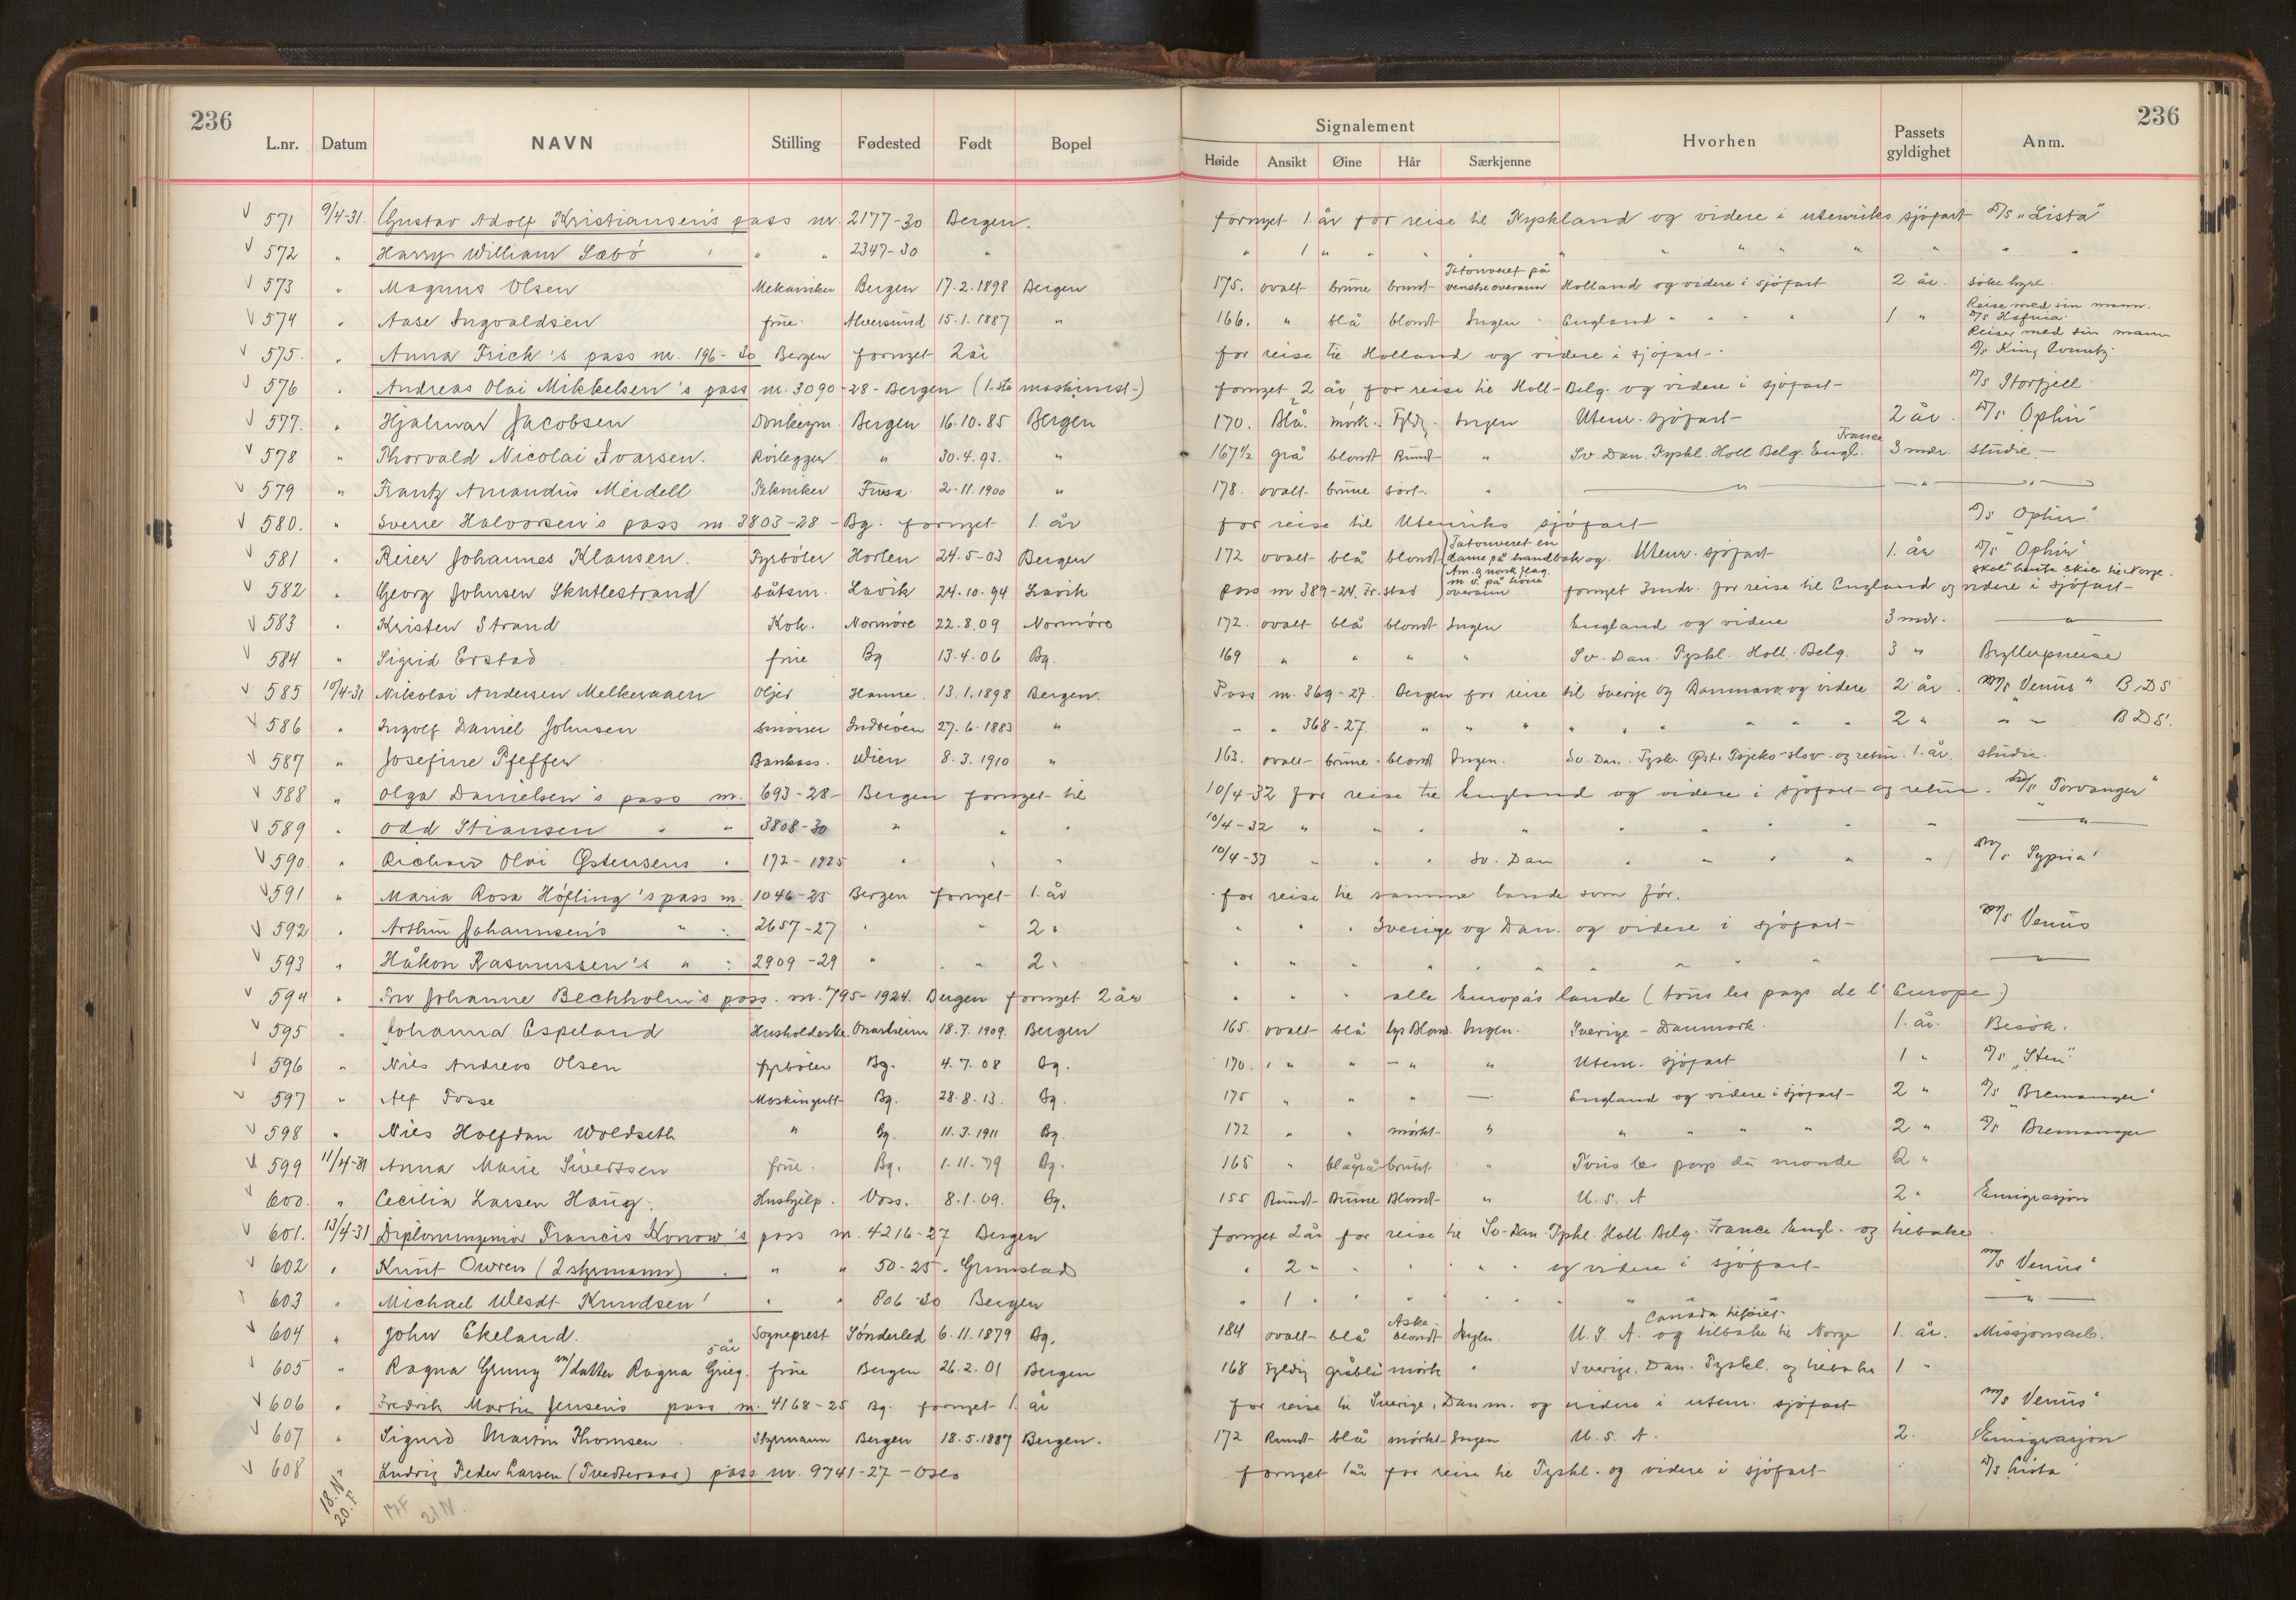 236
236
L.nr. Datum NAVN Stilling Fødested Født Bopel
Signalement
Høide Ansikt Øine Hår Særkjenne Hvorhen Passets gyldighet Anm.
571 9/4-31. Gustav Adolf Kristiansen's pass nr. 2177-30 Bergen. fornyet 1 år for reise til Tyskland og videre i utenriks sjöfart D/S "Lista"
572 " Harry William Sæbö " " 2347-30 " " 1 " " " " " " " " "
573 " Magnus Olsen Mekaniker Bergen 17.2.1898 Bergen 175. ovalt brune brunt Tatouveret på venstre overarm Holland og videre i sjöfart 2 år. söke hyre.
574 " Aase Ingvaldsen frue. Alversund 15.1.1887 " 166. " blå blondt Ingen England " " " " 1 " Reise med sin mann. D/S Hafnia.
575. " Anna Frich's pass nr. 196-30 Bergen fornyet 2 år for reise til Holland og videre i sjöfart. Reiser med sin mann D/S King
576 " Andreas Olai Mikkelsen's pass nr. 3090-28 - Bergen (1.ste maskinist-) fornyet 2 år for reise til Holl-Belg. og videre i sjöfart- D/S Storfjell.
577. " Hjalmar Jacobsen Donkeym. Bergen 16.10.85 Bergen 170. Blå. mörk. Fyldg. Ingen Utenr. sjöfart- 2 år. D/S "Ophir"
578 " Thorvald Nicolai Ivarsen. Rörlegger " 30.4.93. " 167½ grå blondt Rundt " Sv. Dan. Tyskl. Holl Belg. Engl. France 3 mdr. studie.-
579 " Frantz Amandus Meidell Tekniker Fusa. 2.11.1900 " 178. ovalt brune sort. " " " "
580. " Sverre Halvorsen's pass nr. 3803-28 - Bg. fornyet 1. år for reise til Utenriks sjöfart D/S "Ophir"
581 " Reier Johannes Klausen. Fyrböter Horten 24.5-03 Bergen 172 ovalt blå blondt Tatouveret en dame på haandbak og Am. & norsk flag m v. på höire overarm Utenr. sjöfart 1. år D/S "Ophir"
582 " Georg Johnsen Skutlestrand båtsm. Lavik 24.10.94 Lavik pass nr 389-24. Fr.stad fornyet 3 mdr. for reise til England og videre i sjöfart- skal hente skib til Norge.
583 " Kristen Strand Kok. Normöre 22.8.09 Normöre 172. ovalt blå blondt Ingen England og videre 3 mdr. "
584 " Sigrid Erstad frue Bg 13.4.06 Bg. 169 " " " " Sv. Dan. Tyskl. Holl. Belg. 3 " Bryllupsreise
585 10/4-31 Nikolai Andersen Melkeraaen Oljer Hamre. 13.1.1898 Bergen. Pass nr. 369-27. Bergen for reise til Sverige og Danmark og videre 2 år. M/S "Venus" B.D.S
586 " Ingolf Daniel Johnsen smörer Indreöen 27.6.1883 " " " 368-27. " " " " " " " " " 2 " " " B D S.
587 " Josefine Pfeffer Bankass. Wien 8.3.1910 " 163. ovalt brune. blond Ingen. Sv. Dan. Tysk. Öst. Tsjeko-slov. og retur. 1. år. studie.
588 " Olga Danielsen's pass nr. 693-28 - Bergen fornyet til 10/4-32 for reise til England og videre i sjöfart- og retur - D/S "Torvanger"
589 " Odd Stiansen " " 3808-30 " " " 10/4-32 " " " " " " " " " "
590. " Richard Olai Gstensens " 172-1925 " " " 10/4-33 " " " Sv. Dan " " " " " M/S Sypria"
591 " Maria Rosa Höfling's pass nr. 1046-25 Bergen fornyet 1. år for reise til samme lande som för.
592 " Arthur Johannsen's " " 2657-27 " " 2 " " " " Sverige og Dan. og videre i sjöfart- M/S Venus
593 " Håkon Rasmussen's " " 2909-29 " " " 2 " " " " " " " " " " "
594 " Fru Johanne Bechholm's pass. nr. 795-1924. Bergen fornyet 2 år " " " alle Europas lande (tous les pays de l'Europe)
595 " Johanna Espeland Husholderske. 18.7.1909. Bergen 165. ovalt blå lys Blond. Ingen. Sverige - Danmark. 1. år. Besök.
596 " Nils Andreas Olsen fyrböter Bg. 4.7.08 Bg. 170. " " " " " Utenr. sjöfart 1 " D/S "Sten"
597 " Alf Fosse Maskingutt Bg. 28.8.13. Bg. 175 " " " — England og videre i sjöfart- 2 " D/S "Bremanger"
598 " Nils Halfdan Woldseth " Bg. 11.3.1911 Bg. 172 " " mörkt " " " " " 2 " D/S Bremanger
599 11/4-31 Anna Marie Sivertsen frue. Bg. 1.11.79 Bg. 165 " blågrå brunt " Tous les pays du monde 2 "
600. " Cecilia Larsen Haug. Hushjelp. Voss. 8.1.09. Bg. 155 Rundt- Brune Blondt- " U.S.A 2 " Emigrasjon
601. 13/4-31 Diplomingeniör Francis Konow's pass nr. 4216-27 Bergen fornyet 2 år for reise til Sv-Dan. Tyskl. Holl. Belg. France Engl. og tilbake
602 " Knut Owren (2 styrmann) " " " 50-25. Grimstad " 2 " " " " " og videre i sjöfart- M/S Venus"
603 " Michael Wesdt Knudsen " " 806-30 Bergen " 1 " " " " " " "
604 " John Ekeland. Sogneprest Sönderled 6.11.1879 Bg. 184 ovalt- blå Aske-blondt Ingen. U.S.A. og tilbake til Norge Canada tilföiet- 1. år. Missjonsarb.
605 " Ragna Grung m/datter Ragna Grieg. 5 år frue Bergen 26.2.01 Bergen 168 fyldig gråblå mörk " Sverige. Dan. Tyskl. og tilbake 1 "
606 " Fredrik Martin Jensen's pass nr. 4168-25 Bg. fornyet 1. år for reise til Sverige, Danm. og videre i utenr. sjöfart M/S Venus"
607 " Sigurd Martin Thomsen Styrmann Bergen 18.5.1887 Bergen. 172 Rundt- blå mörkt- Ingen U.S.A. 2. Emigrasjon
608 " Ludvig Peder Larsen (Tvedteraas) pass nr. 9741-27 - Oslo fornyet 1 år for reise til Tyskl. og videre i sjöfart- D/S Lista"
18. N
20. F
17F
21 N.